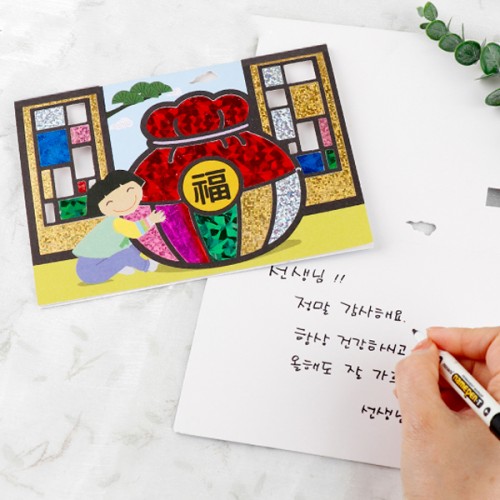 福
선생님 !!
정말 감사해요.
항상 건강하시고
올해도 잘 가르
선생님